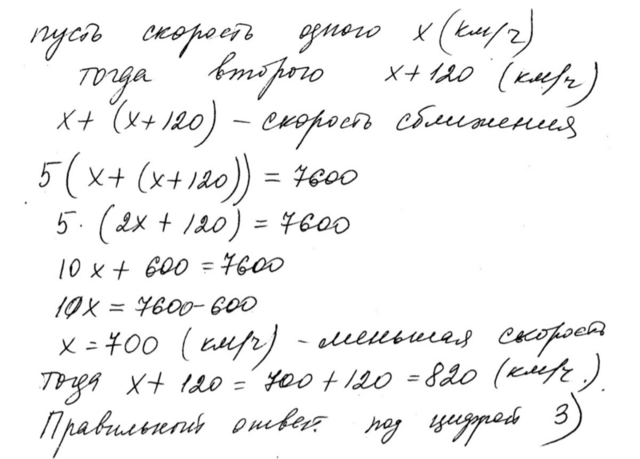 пусть скорость одного x (км/ч)
тогда второго x+120 (км/ч)
x+ (x+120) – скорость сближения
5(x+(x+120)) = 7600
5·(2x+120) = 7600
10x + 600 = 7600
10x = 7600-600
x = 700 (км/ч) - меньшая скорость
тогда x+120 = 700+120 = 820 (км/ч.)
Правильный ответ под цифрой 3)